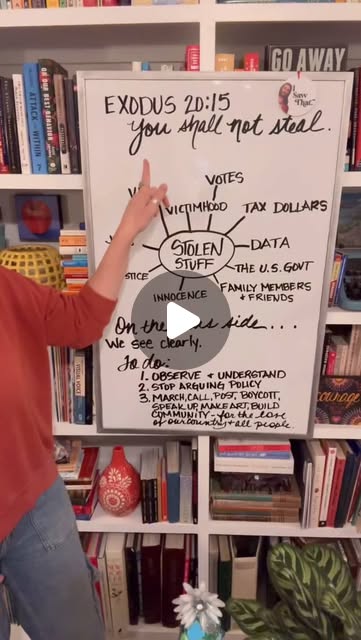 GO AWAY
I Saw That.
EXODUS 20:15
You shall not steal.
VOTES
VICTIMHOOD
TAX DOLLARS
STOLEN
STUFF
DATA
THE U.S. GOVT
INNOCENCE
FAMILY MEMBERS
& FRIENDS
On the side....
We see clearly.
To do:
1. OBSERVE + UNDERSTAND
2. STOP ARGUING POLICY
3. MARCH, CALL, POST, BOYCOTT,
SPEAK UP, MAKE ART, BUILD
COMMUNITY - for the love
of our country & all people.
ATTACK from WITHIN
ON OUR BEST BEHAVIOR
courage